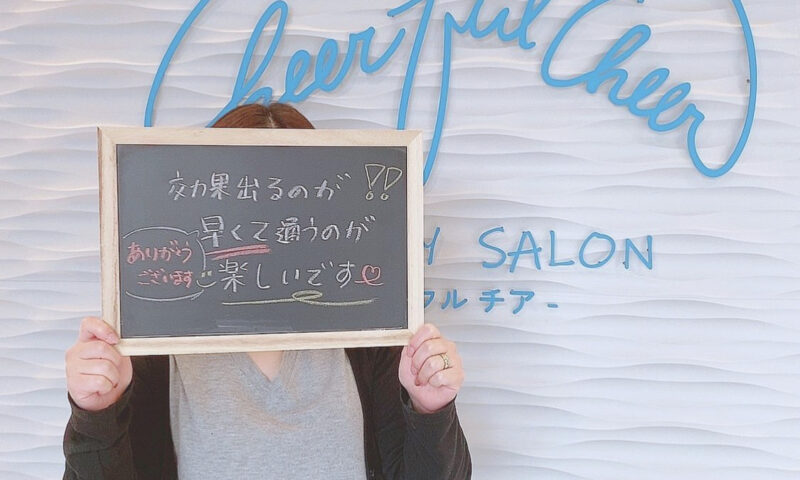 Cheerful Cheer
SALON
ルチアー
効果出るのが!!
早くて通うのが
楽しいです
ありがとう
ございます